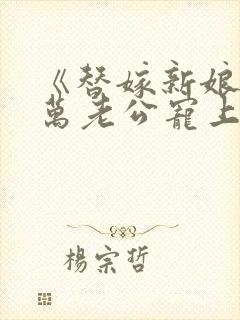 《替嫁新娘
萬老公寵上
楊宗哲